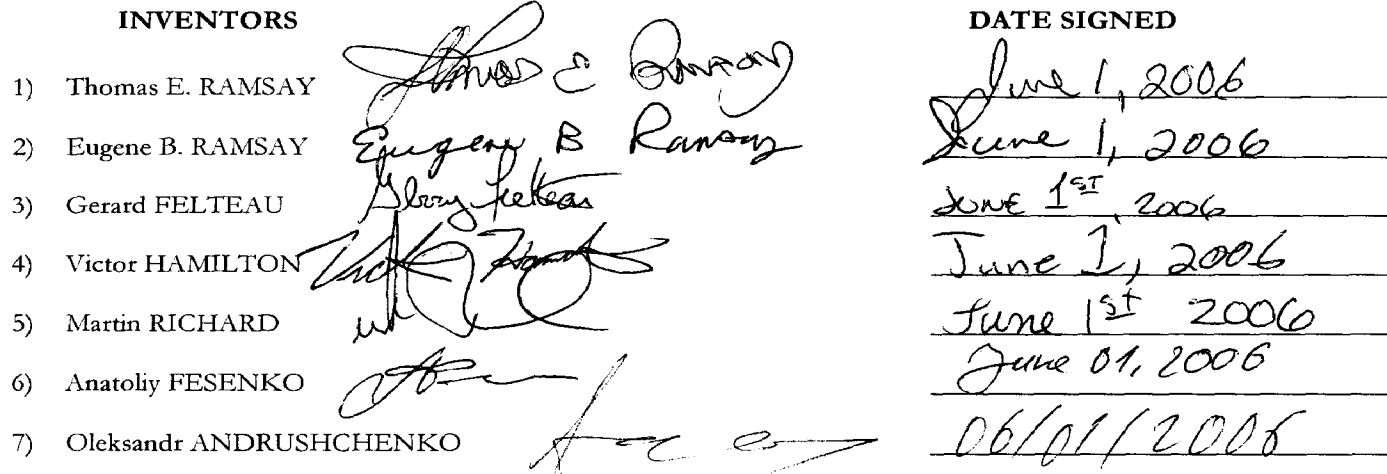 INVENTORS DATE SIGNED
1) Thomas E. RAMSAY Thomas E Ramsay June 1, 2006
2) Eugene B. RAMSAY Eugene B Ramsay June 1, 2006
3) Gerard FELTEAU Gerry Felteau JUNE 1ST, 2006
4) Victor HAMILTON Victor Hamilton June 1, 2006
5) Martin RICHARD June 1st 2006
6) Anatoliy FESENKO June 01, 2006
7) Oleksandr ANDRUSHCHENKO 06/01/2006